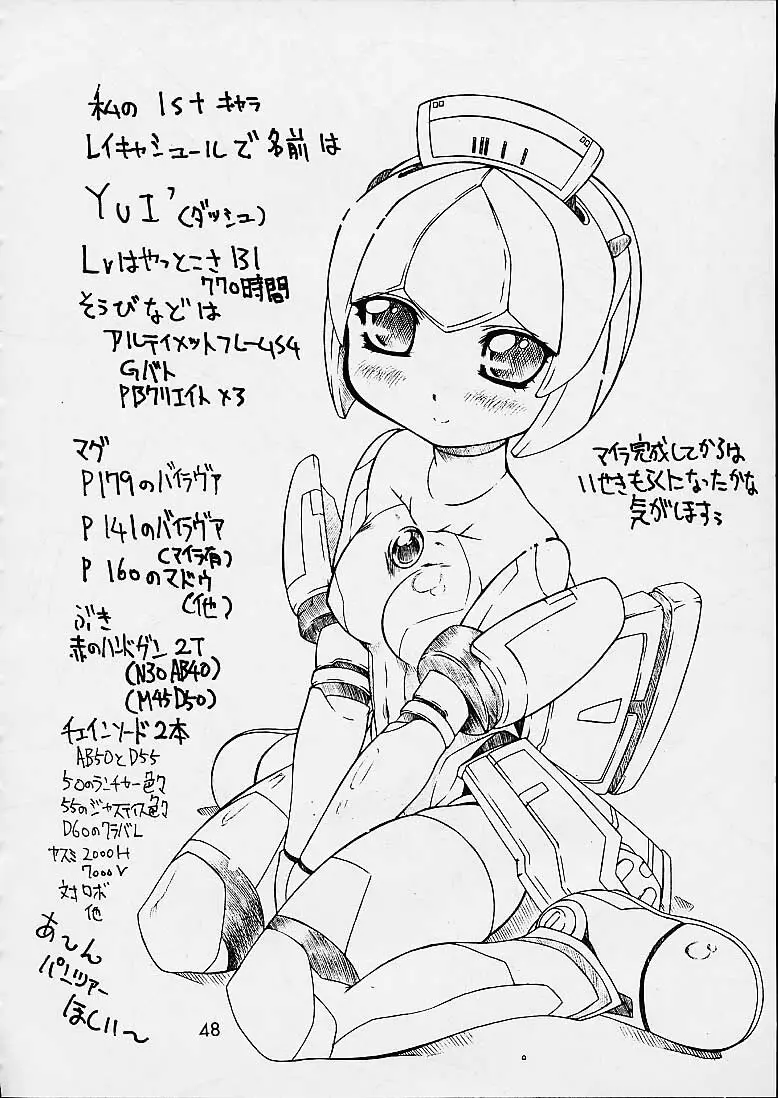 私の 1st キャラ
レイキャシュールで名前は
YUI'(ダッシュ)
Lvはやっとこさ131
770時間
そうびなどは
アルティメットフレームS4
Gバト
PBクリエイト×3
マグ
P179のバイラヴァ
P141のバイラヴァ
(マイラ有)
P160のマドウ
(他)
ぶき
赤のハンドガン 2T
(N30AB40)
(M45D50)
チェインソード2本
AB50とD55
50のランチャー色々
55のジャスティス色々
D60のクラバL
ヤスミ2000H
7000V
対ロボ
他
あーん
パンツァー
ほしい〜
マイラ完成してからは
いせきもらくになったかな
気がほすぅ
48